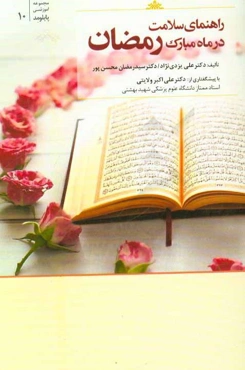 مجموعه
آموزشی
بابلومند
۱۰
راهنمای سلامت
در ماه مبارک رمضان
تألیف: دکتر علی یزدی‌نژاد / دکتر سیدرمضان محسن‌پور
با پیشگفتاری از: دکتر علی اکبر ولایتی
استاد ممتاز دانشگاه علوم پزشکی شهید بهشتی